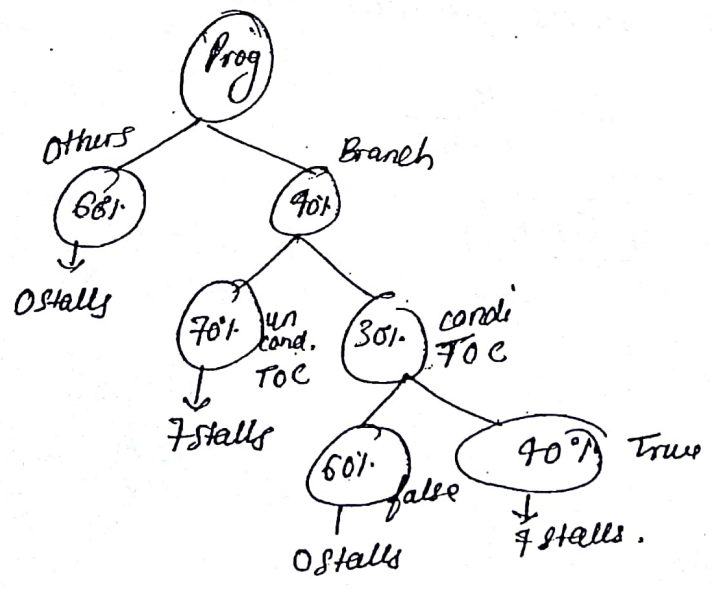 Prog
Others
Branch
60%
40%
0 stalls
70%
un
cond.
TOC
30%
condi
TOC
7 stalls
60%
false
40%
True
0 stalls
7 stalls.